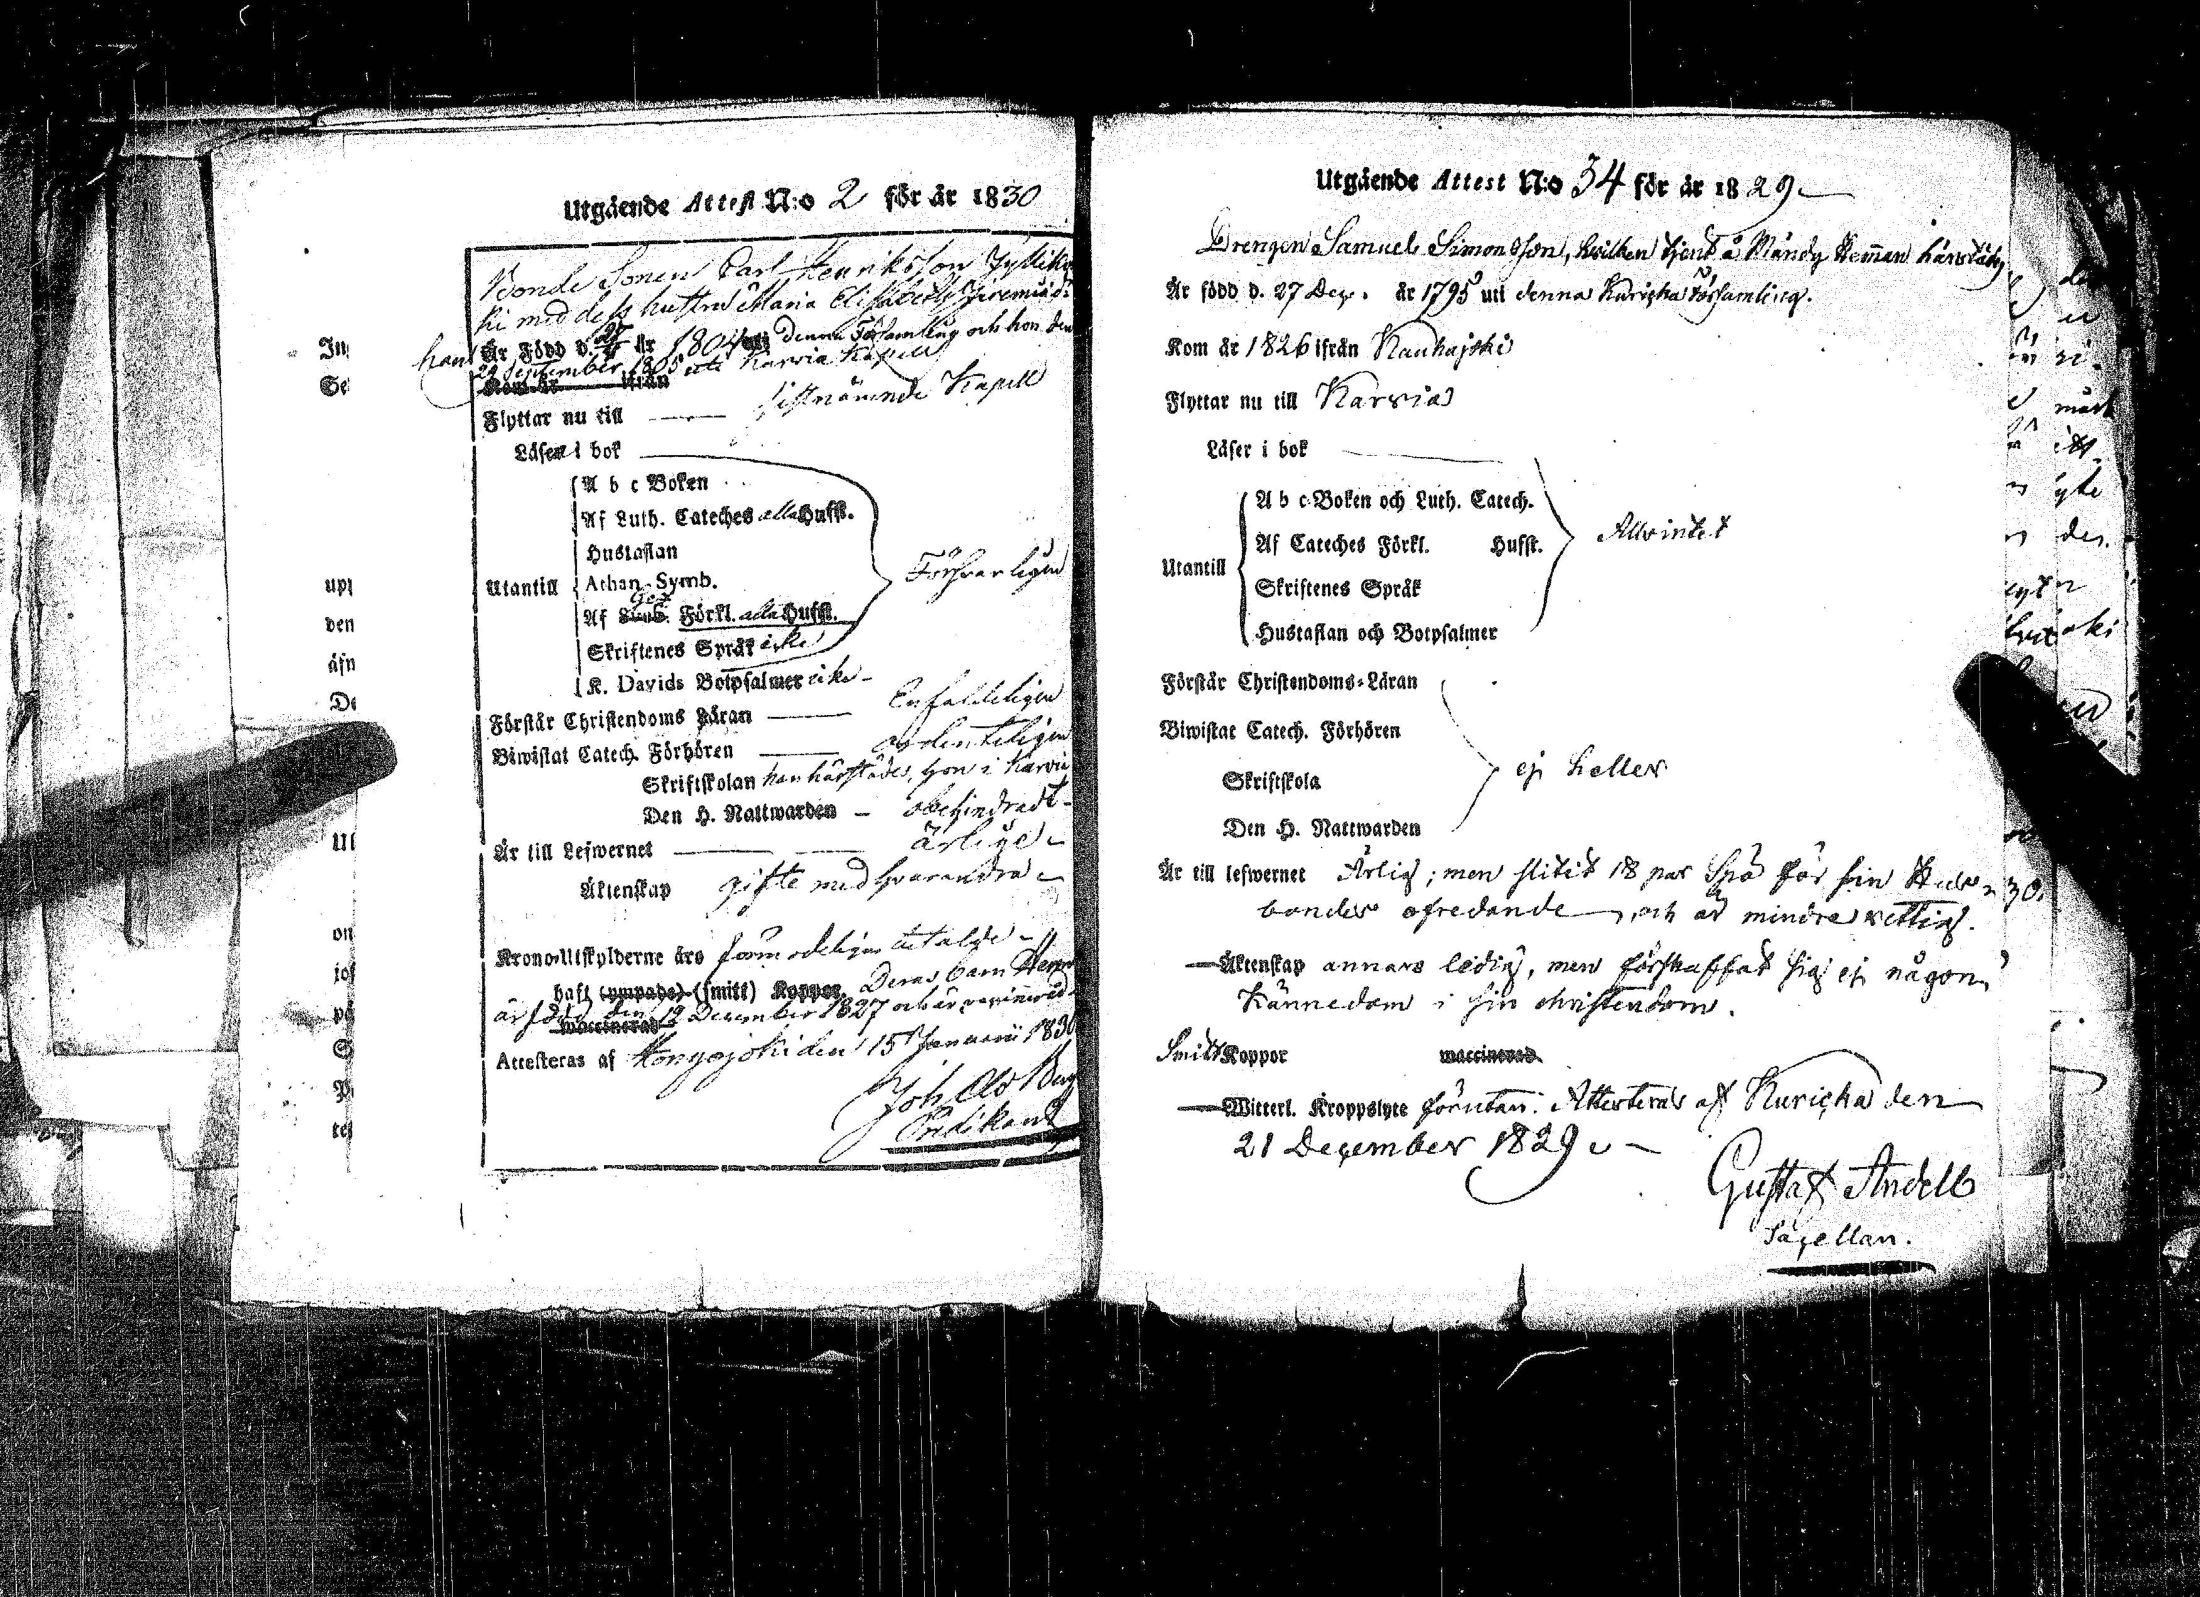 Utgående Attest N:o 2 för år 1830
Bonde Sonen Carl Henriksson
med dess hustru Maria Elisabeth
han Är Född d. år 1804 uti denna Församling och hon den
29 September 1805 uti Karvia Kapell
Kom år ifrån
Flyttar nu till sistnämnde Kapell
Läser i bok
A b c Boken
Af Luth. Cateches alla Hufst.
Hustaflan
Utantill Athan. Symb. Försvarligen
Af Förkl. alla Hufst.
Skriftenes Språk icke
K. Davids Botpsalmer icke
Förstår Christendoms Läran Enfaldeligen
Biwistat Catech. Förhören ordenteligen
Skriftskolan han härstädes, hon i Karvia
Den H. Nattwarden obehindradt
Är till Lefwernet ärlige
Äktenskap gifte med hvarandra
Krono-Utskylderne års förmodeligen betalde
haft (ympade) (smitt) Koppor. Deras barn
är född den 12 December 1827 och är vaccinerad
waccinerad
Attesteras af Hongojoki den 15 Januarii 1830
Joh.
Predikant
In
upp
den
äfn
De
Ut
on
på
S
Utgående Attest N:o 34 för år 1829
Drengen Samuel Simonsson, hvilken tjent å Mändy Hemman härstädes
Är född d. 27 Dec. år 1795 uti denna Kuricka Församling.
Kom år 1826 ifrån Kauhajoki
Flyttar nu till Karvia
Läser i bok
A b c Boken och Luth. Catech.
Af Cateches Förkl. Hufst. Allsintet
Utantill
Skriftenes Språk
Hustaflan och Botpsalmer
Förstår Christendoms-Läran
Biwistat Catech. Förhören
ej heller
Skriftskola
Den H. Nattwarden
Är till lefwernet Ärlig; men slitit 18 par Spö för sin Hus-
bondes ofredande, och är mindre vettig.
Äktenskap annars ledig, men förskaffat sig ej någon
Kännedom i sin christendom.
Smitt Koppor waccinerad
Witterl. Kroppslyte förutan. Attesteras af Kuricka den
21 December 1829
Gustaf Andell
Sacellan.